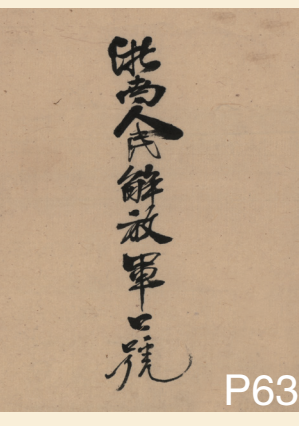 浙南人民解放軍口號
P63